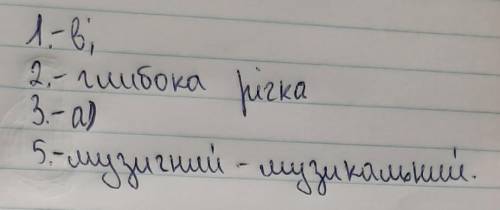 1.-в;
2.-глибока річка
3.-а)
5.-музичний - музикальний.